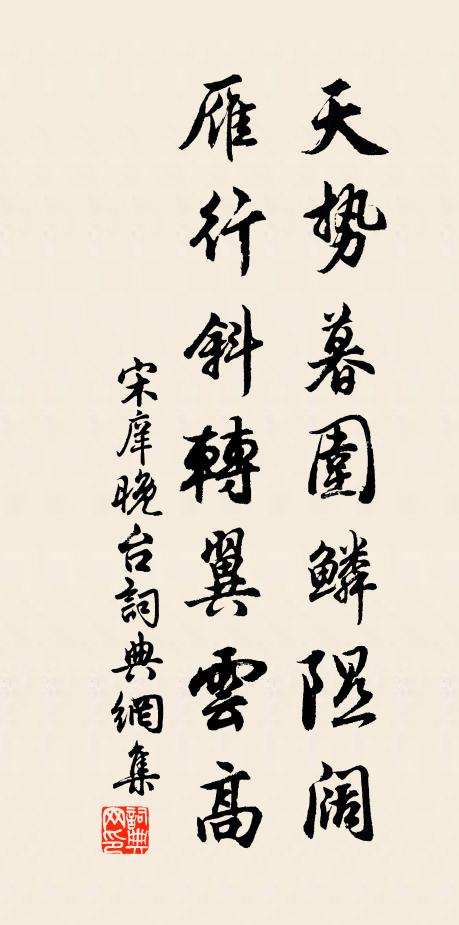 天势暮圍鱗隰阔
雁行斜轉翼雲高
宋庠晚台詞典網集
詞典网印